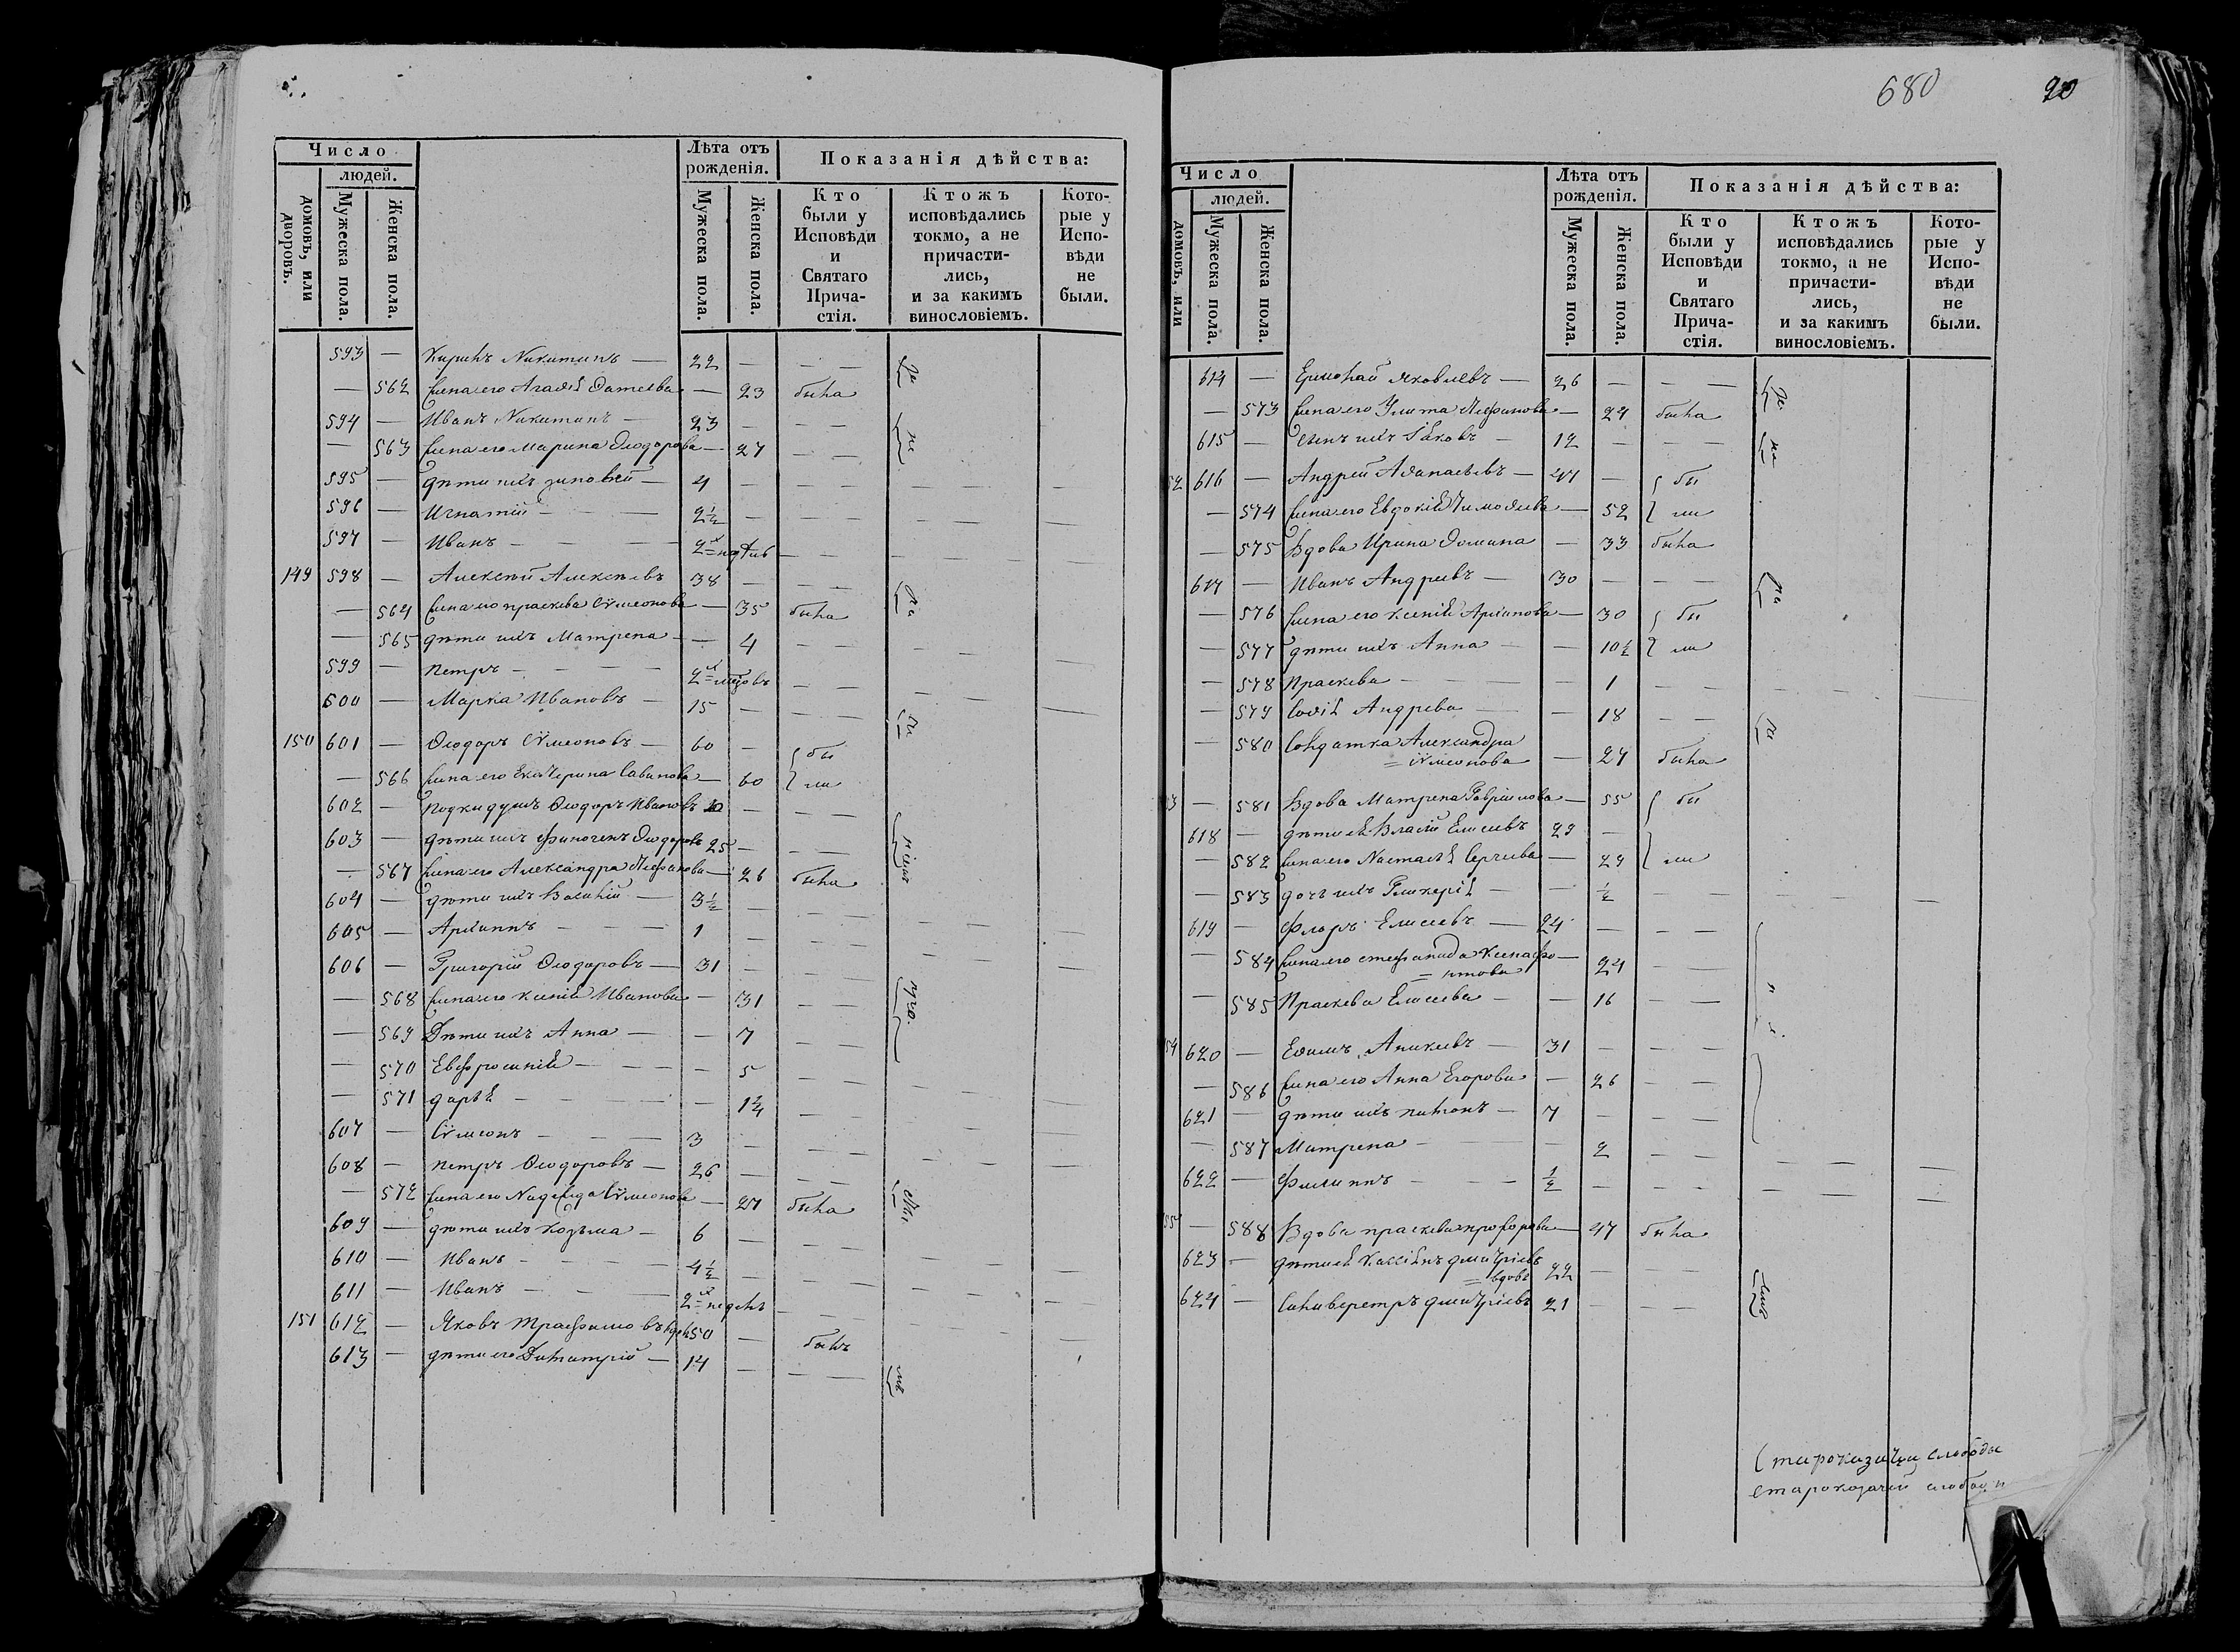 Число
людей.
домовъ, или дворовъ.
Мужеска пола.
Женска пола.
Лѣта отъ рожденія.
Мужеска пола.
Женска пола.
Показанія дѣйства:
Кто были у Исповѣди и Святаго Прича-стія.
Ктожъ исповѣдались токмо, а не причасти-лись, и за какимъ винословіемъ.
Кото-рые у Испо-вѣди не были.
593 — Никитинъ — 22 — — —
— 562 жена его Агафія — 23 была
594 — Иванъ Никитинъ — 23 — — —
— 563 жена его Марина Ѳеодорова — 27 — —
595 — дѣти ихъ Зиновей — 4 — — — — —
596 — Игнатій — — 2½ — — — — —
597 — Иванъ — — — 2х недѣль — — — — —
149 598 — Алексѣй Алексѣевъ 38 — — — —
— 564 жена его Праскева Сѵмеонова — 35 была
— 565 дѣти ихъ Матрена — — 4 — — — —
599 — Петръ — — — — 2х — — — — —
600 — Марка Ивановъ — 15 — — — —
150 601 — Ѳеодоръ Сѵмеоновъ — 60 — бы
— 566 жена его Екатерина Савинова — 60 ли
602 — подкидушъ Ѳеодоръ Ивановъ 10 — — —
603 — дѣти ихъ Финогенъ Ѳеодоровъ 25 — — —
— 567 жена его Александра — 26 была
604 — дѣти ихъ Василій — 3½ — — — — —
605 — Архиппъ — — — 1 — — — — —
606 — Григорій Ѳеодоровъ — 31 — — —
— 568 жена его Ксенія Иванова — 31 — —
— 569 Дѣти ихъ Анна — — 7 — —
— 570 Евфросинія — — — — 5 — — — —
— 571 Дарья — — — — 1¼ — — — —
607 — Сѵмеонъ — — — 3 — — — — —
608 — Петръ Ѳеодоровъ — 26 — — —
— 572 жена его Надежда Сѵмеонова — 27 была
609 — дѣти ихъ Козьма — 6 — — — — —
610 — Иванъ — — — — 4½ — — — — —
611 — Иванъ — — — 2х недѣль — — — — —
151 612 — Яковъ Трафимовъ вдовъ 50 — былъ
613 — дѣти его Димитрій — 14 — — —
680
20
Число
людей.
домовъ, или
Мужеска пола.
Женска пола.
Лѣта отъ рожденія.
Мужеска пола.
Женска пола.
Показанія дѣйства:
Кто были у Исповѣди и Святаго Прича-стія.
Ктожъ исповѣдались токмо, а не причасти-лись, и за какимъ винословіемъ.
Кото-рые у Испо-вѣди не были.
614 — Ермолай Яковлевъ — 26 — — —
— 573 жена его Улита — 24 была
615 — сынъ ихъ Іаковъ — 12 — — —
52 616 — Андрей Аѳанасьевъ — 47 — бы
— 574 жена его Евдокія Тимоѳеева — 52 ли
— 575 Вдова Ирина Ѳомина — 33 была
617 — Иванъ Андреевъ — 30 — — —
— 576 жена его Ксенія Архипова — 30 бы
— 577 дѣти ихъ Анна — — 10½ ли
— 578 Праскева — — — — 1 — — — — —
— 579 Софія Андрева — — 18 — —
— 580 Солдатка Александра
Сѵмеонова — 27 была
53 — 581 Вдова Матрена Гавріилова — 55 бы
618 — дѣти ея Власій Елисевъ 29 —
— 582 жена его Настасья Сергиева — 29 ли
— 583 дочь ихъ Гликерія — — ½ — — — — —
619 — Флоръ Елисеевъ — 24 — — —
— 584 жена его Стефанида Ксенофо-
нтова — 24 — —
— 585 Праскева Елисеева — — 16 — —
54 620 — Ефимъ Аникеевъ — 31 — — —
— 586 жена его Анна Егорова — 26 — —
621 — дѣти ихъ — 7 — — —
— 587 Матрена — — — 2 — — — — —
622 — Филиппъ — — — ½ — — — — —
55 — 588 Вдова Праскева — 47 была
623 — дѣти ея Кассіянъ Дмитріевъ
вдовъ 22 — — —
624 — Дмитріевъ 21 — — —
слободы
Староказачей слободы